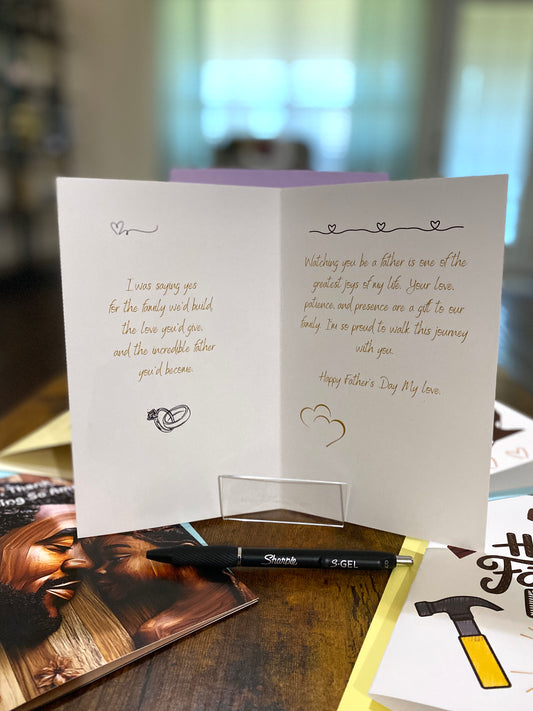 I was saying yes
for the family we'd build,
the love you'd give,
and the incredible father
you'd become.
Watching you be a father is one of the
greatest joys of my life. Your love,
patience, and presence are a gift to our
family. I'm so proud to walk this journey
with you.
Happy Father's Day My love.
Sharpie S•GEL